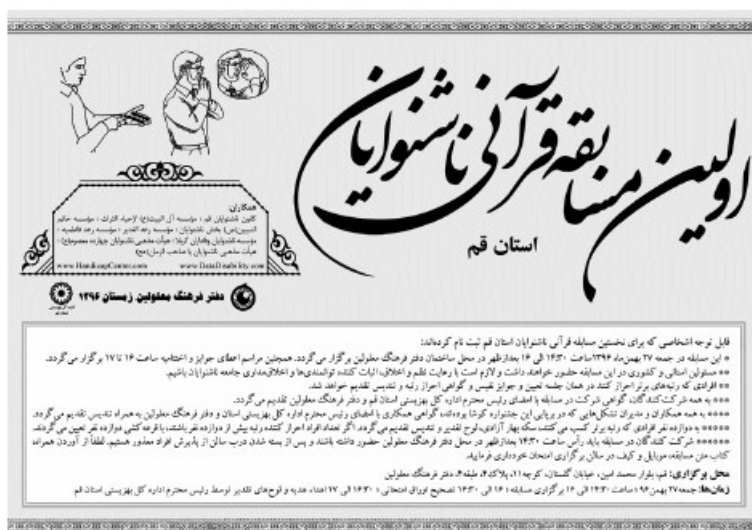 اولین مسابقه قرآنی ناشنوایان
استان قم
همکاران:
کانون ناشنوایان قم؛ مؤسسه آل البیت(ع) لإحیاء التراث؛ مؤسسه خاتم
النبیین(ص) بخش ناشنوایان؛ مؤسسه رعد الغدیر؛ مؤسسه رعد فاطمیه؛
مؤسسه ناشنوایان وفاداران کربلا؛ هیأت مذهبی ناشنوایان چهارده معصوم(ع)؛
هیأت مذهبی ناشنوایان یا صاحب الزمان(عج)
www.HandicapCenter.com www.DataDisability.com
دفتر فرهنگ معلولین، زمستان ۱۳۹۶
قابل توجه اشخاصی که برای نخستین مسابقه قرآنی ناشنوایان استان قم ثبت نام کرده‌اند:
* این مسابقه در جمعه ۲۷ بهمن‌ماه ۱۳۹۶ ساعت ۱۴:۳۰ الی ۱۶ بعدازظهر در محل ساختمان دفتر فرهنگ معلولین برگزار می‌گردد. همچنین مراسم اعطای جوایز و اختتامیه ساعت ۱۶ تا ۱۷ برگزار می‌گردد.
** مسئولین استانی و کشوری در این مسابقه حضور خواهند داشت و لازم است با رعایت نظم و اخلاق، اثبات کننده توانمندی‌ها و اخلاق‌مداوی جامعه ناشنوایان باشیم.
** افرادی که رتبه‌های برتر احراز کنند در همان جلسه تعیین و جوایز نفیس و گواهی احراز رتبه و تندیس تقدیم خواهد شد.
*** به همه شرکت‌کنندگان، گواهی شرکت در مسابقه با امضای رئیس محترم اداره کل بهزیستی استان قم و دفتر فرهنگ معلولین تقدیم می‌گردد.
**** به همه همکاران و مدیران تشکل‌هایی که در برپایی این جشنواره کوشا بوده‌اند، گواهی همکاری با امضای رئیس محترم اداره کل بهزیستی استان و دفتر فرهنگ معلولین به همراه تندیس تقدیم می‌گردد.
***** به دوازده نفر افرادی که رتبه برتر کسب می‌کنند، سکه بهار آزادی، لوح تقدیر و تندیس تقدیم می‌گردد. اگر تعداد افراد احراز کننده رتبه بیش از دوازده نفر باشند، با قرعه کشی دوازده نفر تعیین می‌گردند.
****** شرکت کنندگان در مسابقه باید رأس ساعت ۱۴:۳۰ بعدازظهر در محل دفتر فرهنگ معلولین حضور داشته باشند و پس از بسته شدن درب سالن از پذیرش افراد معذور هستیم. لطفاً از آوردن همراه،
کتاب متن مسابقه، موبایل و کیف در سالن برگزاری امتحان خودداری فرمایید.
محل برگزاری: قم، بلوار محمد امین، خیابان گلستان، کوچه ۱۱، پلاک ۴، طبقه ۴، دفتر فرهنگ معلولین
زمان‌ها: جمعه ۲۷ بهمن ۹۶؛ ساعت ۱۴:۳۰ الی ۱۶ برگزاری مسابقه؛ ۱۶ الی ۱۶:۳۰ تصحیح اوراق امتحانی؛ ۱۶:۳۰ الی ۱۷ اهداء هدیه و لوح‌های تقدیر توسط رئیس محترم اداره کل بهزیستی استان قم